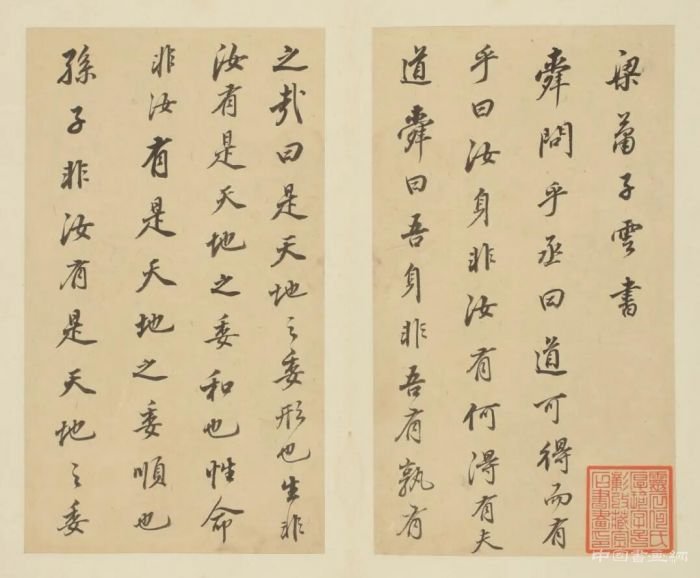 梁蕭子雲書
舜問乎丞曰道可得而有
乎曰汝身非汝有何得有夫
道舜曰吾身非吾有孰有
之哉曰是天地之委形也生非
汝有是天地之委和也性命
非汝有是天地之委順也
孫子非汝有是天地之委
中国書画網